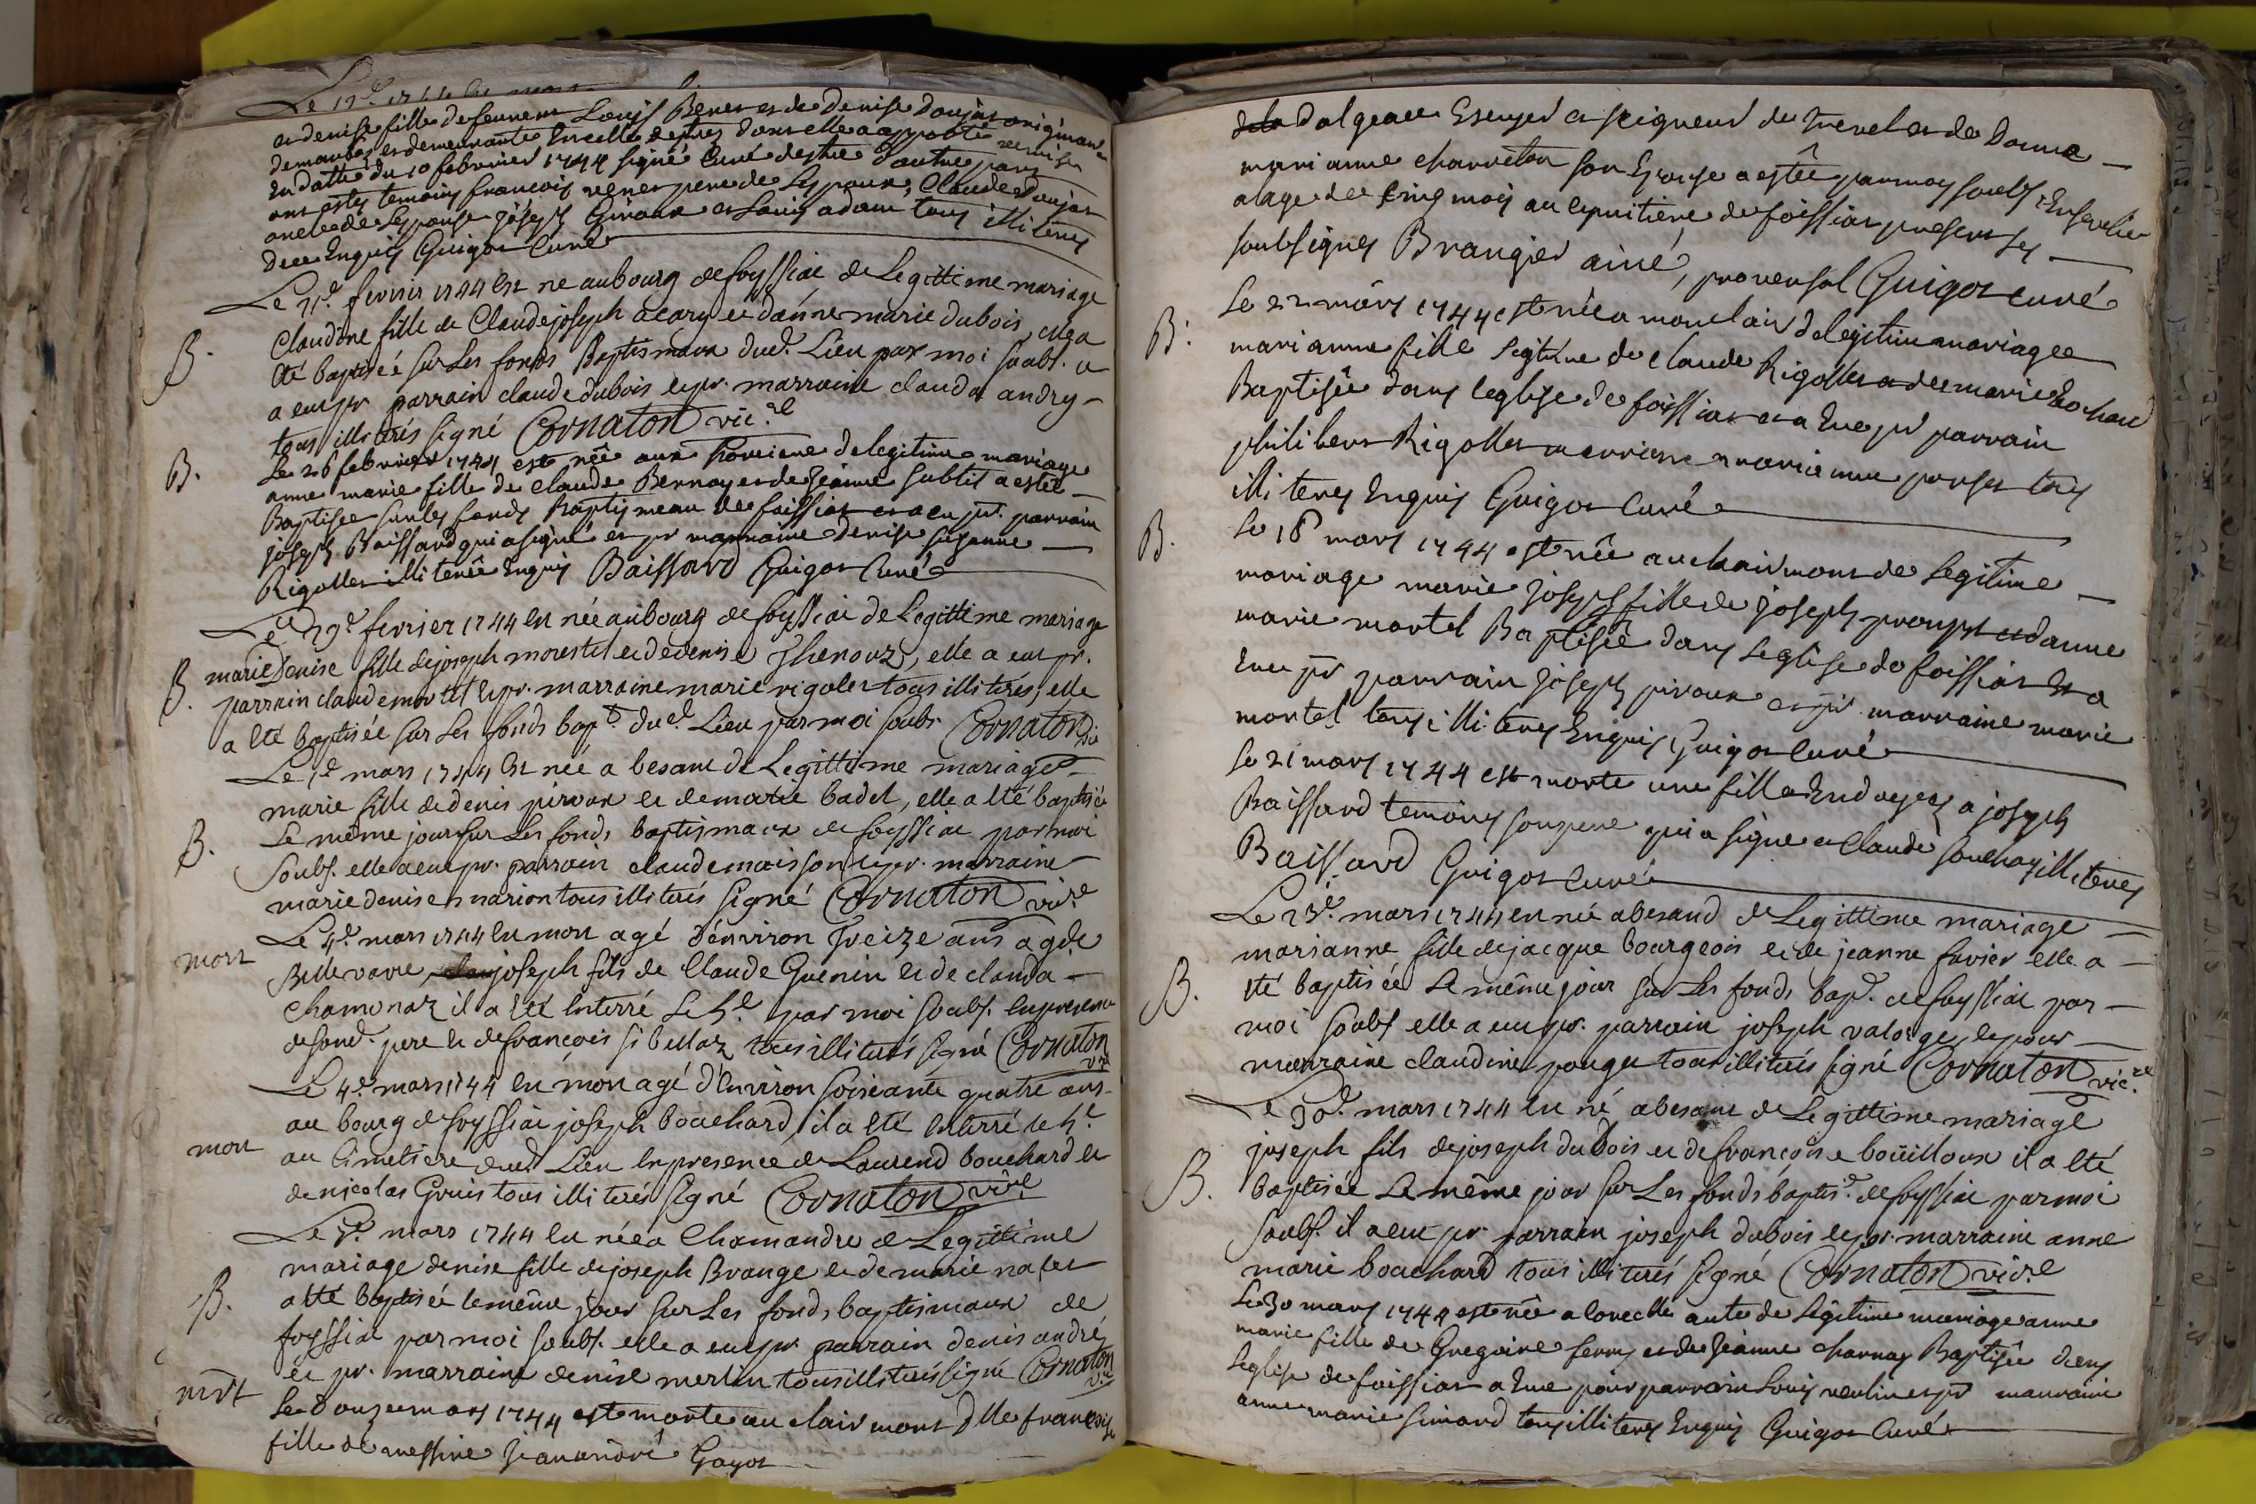 et denise fille de feu Louys Bener et de denise Doujat
demaubos et demeurante
En datte du 10 febvrier 1744 signé Curé d'autre part
ont estés temoins francois vener pere de Lespoux, Claude Doujat
oncle de Lespouse joseph Giroux et Louis adam tous illiterés
Guigot Curé
Le fevrier 1744 Est ne au bourg de foyssiat de Legittime mariage
Claudine fille de Claude joseph acary et danne marie dubois, elle a
été baptisée sur Les fonds Baptismaux dud. Lieu par moi soubs.
a eu pr parrain claude dubois et pr. marraine clauda andry
tous illiterés signé Cornaton vic.re
B.
Le 26 febvrier 1744 est née aux de legitime mariage
anne marie fille de Claude Bernay et de Jeanne subtil a estée
Baptisée sur les fonds baptismeau de foissiat et a eu pr. parrain
joseph Baissard qui a signé et pr marraine denise susanne
Rigollet illiterée Enquis Baissard Guigot Curé
B.
Le 29e fevrier 1744 est née au bourg de foyssiat de Legittime mariage
marie denise fille de joseph morestel et de denise Thenoux, elle a eu pr.
parrain claude mortel et pr. marraine marie rigolet tous illiterés, elle
a été baptisée sur Les fonds bapt. dud. Lieu par moi soubs. Cornaton vic
B.
Le mars 1744 Est née a besant de Legittime mariage
marie fille de denis piroux et de marie badel, elle a été baptisée
Le même jour sur Les fonds baptismaux de foyssiat par moi
soubs. elle a eu pr. parrain claude maisson et pr. marraine
marie denise marion tous illiterés signé Cornaton vic.re
B.
Le 4e mars 1744 est mort agé d'environ Treize ans a
Bellevavre joseph fils de Claude Guenin et de clauda
chamonar il a été Enterré Le 5e par moi soubs. En presence
de sond. pere et de francois sibellaz tous illiterés signé Cornaton
vic
mort
Le 4e mars 1744 est mort agé d'Environ soixante quatre ans
au bourg de foyssiat joseph bouchard, il a été Enterré le 5e
au Cimetiere dud. Lieu En presence de Laurend bouchard et
de nicolas Gruis tous illiterés signé Cornaton vic.re
mort
Le mars 1744 est née a Chamandre de Legittime
mariage denise fille de joseph Brange et de marie nalet
a été baptisée le même jour sur Les fonds baptismaux de
foyssiat par moi soubs. elle a eu pr. parrain denis andré
et pr. marraine denise merlin tous illiterés signé Cornaton
B.
Le douze mars 1744 est morte au clairmont Dlle francoise
fille de messire Jean andré Gayot
mort
Dalgeau Escuyer et seigneur de et de Dame
marianne charreton son Epouse a estée par moy soubs. Ensevelie
a lage de cinq mois au cymitiere de foissiat presents les
soubsignés Brangier ainé, provensal Guigot curé
Le 22 mars 1744 est née a monclair de legitime mariage
marianne fille legitime de claude Rigollet et de marie bochard
Baptisée dans leglise de foissiat et a Eue pr parrain
philibert Rigollet marianne tous
illiterés Enquis Guigot Curé
B.
Le 18 mars 1744 est née au clairmont de legitime
mariage marie joseph fille de joseph et danne
marie mortel Baptisée dans Leglise de foissiat Et a
Eue pr parrain joseph piroux et pr. marraine marie
mortel tous illiterés Enquis Guigot Curé
B.
Le 21 mars 1744 est morte une fille a joseph
Baissard temoins son pere qui a signé et Claude illiterés
Baissard Guigot Curé
Le 23e mars 1744 est née a besand de Legittime mariage
marianne fille de jacque bourgeois et de jeanne favier elle a
été baptisée Le même jour sur Les fonds bap. de foyssiat par
moi soubs elle a eu pr. parrain joseph valorge, et pour
marraine claudine pouget tous illiterés signé Cornaton vic.re
B.
Le 30e mars 1744 est né a besant de Legittime mariage
joseph fils de joseph dubois et de francoise boüilloux il a été
baptisée Le même jour sur Les fonds baptis. de foyssiat par moi
soubs. il a eu pr parrain joseph dubois et pr. marraine anne
marie bouchard tous illiterés signé Cornaton vic.re
B.
Le 30 mars 1744 est née a de legitime mariage anne
marie fille de Gregoire ferry et de Jeanne charnay Baptisée dans
leglise de foissiat a Eue pour parrain Louis et pr marraine
anne marie simard tous illiterés Enquis Guigot Curé